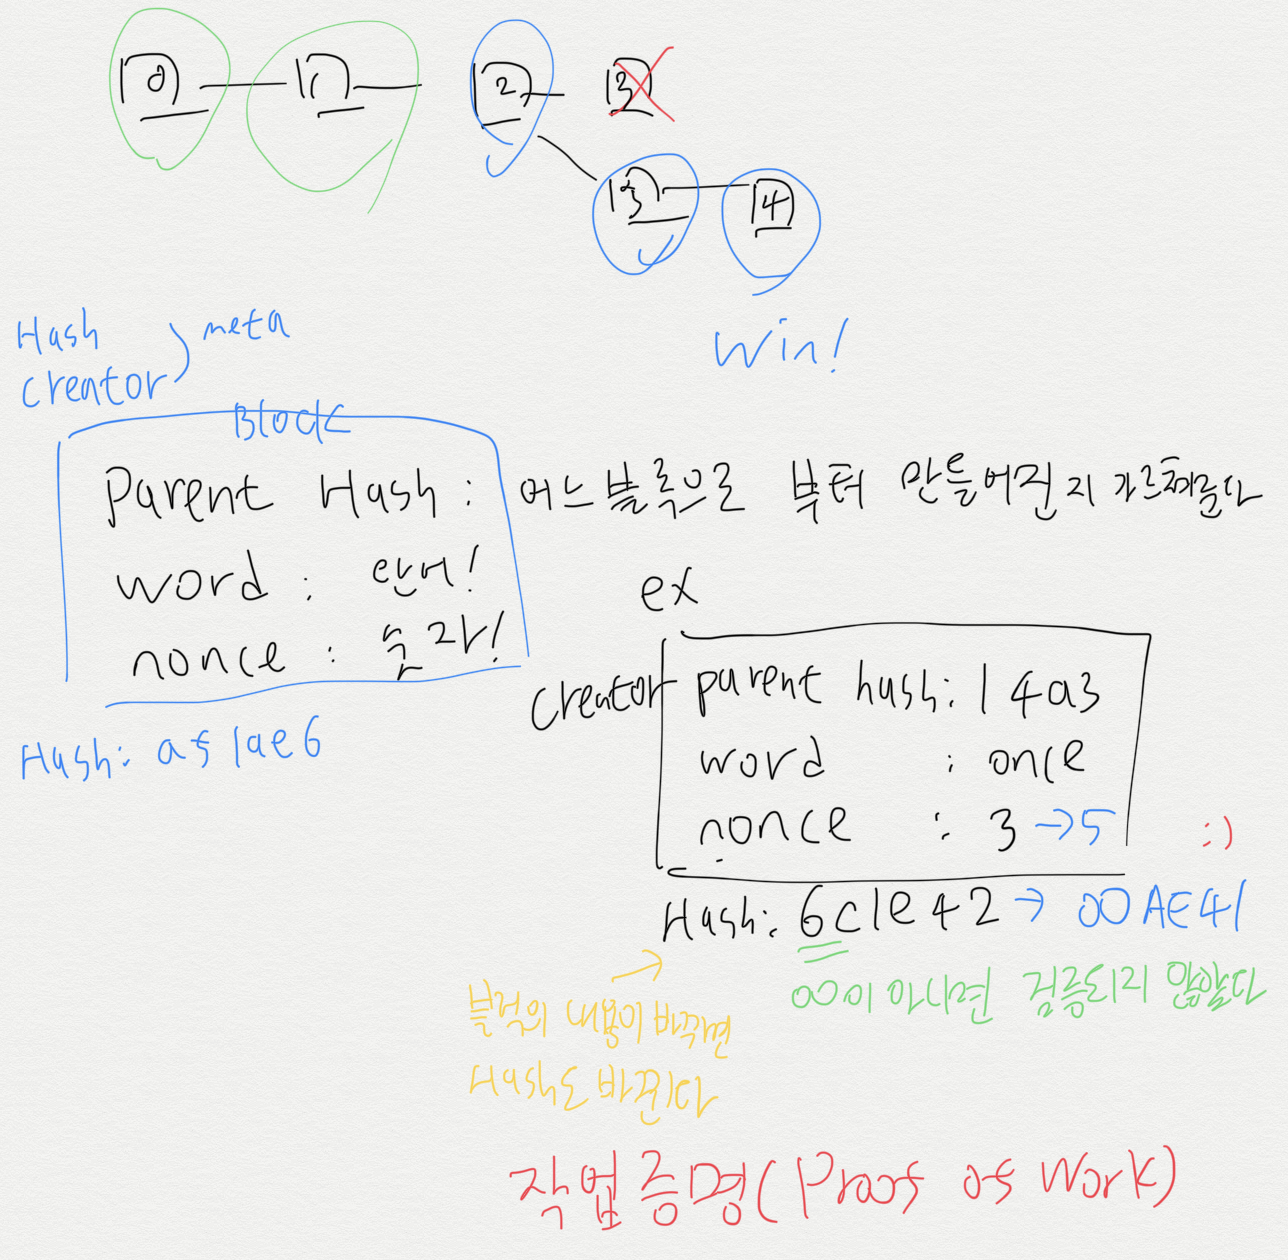 0 1 2 3
3 4
Win!
Hash
creator
meta
Block
Parent Hash : 어느블록으로 부터 만들어진지 가르쳐준다
word : 단어!
nonce : 숫자!
Hash: af1ae6
ex
creator
parent hash: 14a3
word : once
nonce : 3 → 5
:)
Hash: 6c1e42 → 00AE41
00이 아니면 검증되지 않았다
블럭의 내용이 바뀌면
Hash도 바뀐다
작업증명(Proof of Work)